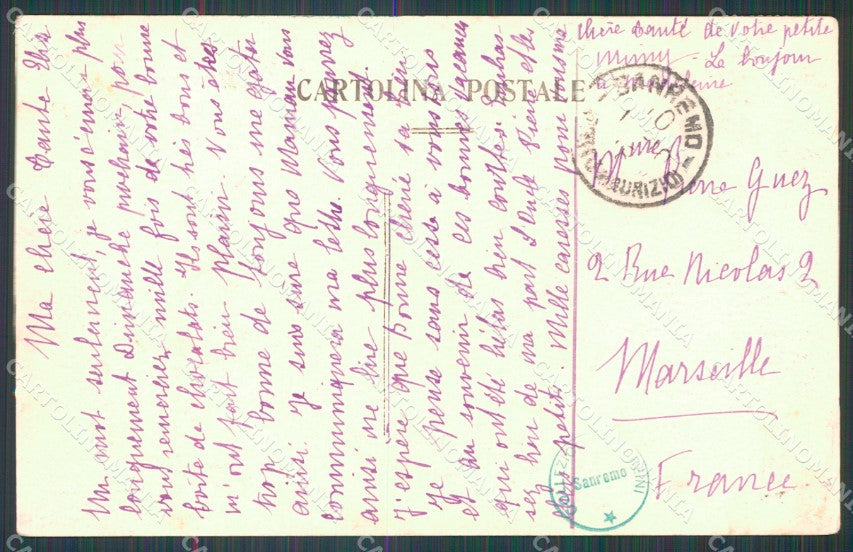 CARTOLINA POSTALE
Ma chère Tante Elise
Un mot seulement, je vous écrirai plus
longuement Dimanche prochain, pour
vous remercier mille fois de votre bonne
boîte de chocolats. Ils sont très bons et
m'ont fait bien plaisir. Vous êtes
trop bonne de toujours me gâter
ainsi. Je suis sûre que Maman vous
communiquera ma lettre. Vous pourrez
ainsi me lire plus longuement.
J'espère que bonne chérie va bien
Je pense sans cesse à vous tous
et au souvenir de ces bonnes vacances
qui ont été hélas bien courtes.
bon de ma part à l'oncle et les
petits. Mille caresses pour vous ma
chère tante de votre petite
Mimy - Le bonjour
à
SANREMO
MAURIZIO
Guez
2 Rue Nicolas 2
Marseille
France
Sanremo
CARTOLINOMANIA